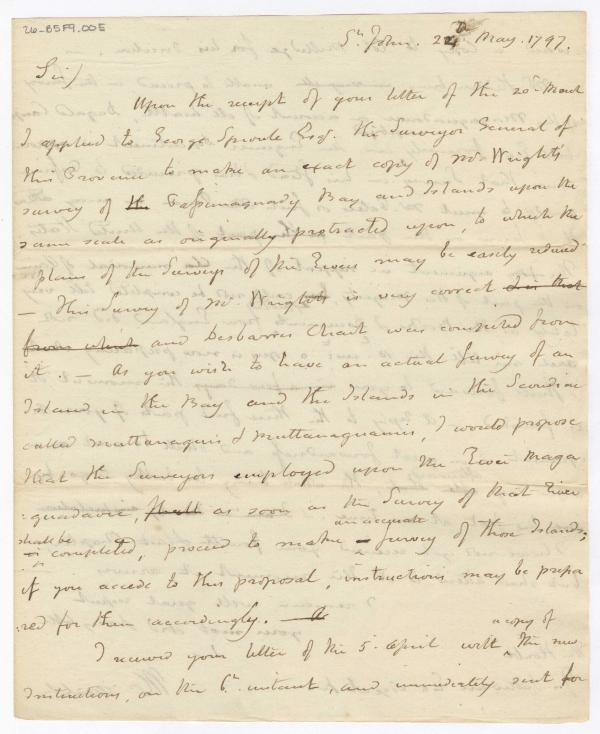 26-B5F9.00E
St. John. 24 May. 1797.
Sir/
Upon the receipt of your letter of the 20th March
I applied to George Sproule Esqr. the Surveyor General of
this Province to make an exact copy of Mr. Wright's
survey of the Passamaquody Bay and Islands upon the
same scale as originally protracted upon, to which the
plans of the Surveys of the Rivers may be easily reduced
— This Survey of Mr. Wright's is very correct and is that
from which and Desbarres Chart was computed from
it. — As you wish to have an actual survey of an
Island in the Bay and the Islands in the Scoodiac
called Muttanaguis & Muttanaguamis, I would propose
that the Surveyors employed upon the River Maga
:guadavic, shall as soon as the Survey of that River
shall be
is completed, proceed to make a survey of those Islands;
an accurate
if you accede to this proposal, instructions may be prepa
:red for them accordingly. — A
a copy of
I received your letter of the 5. April with the new
Instructions, on the 6th. instant, and immediately sent for